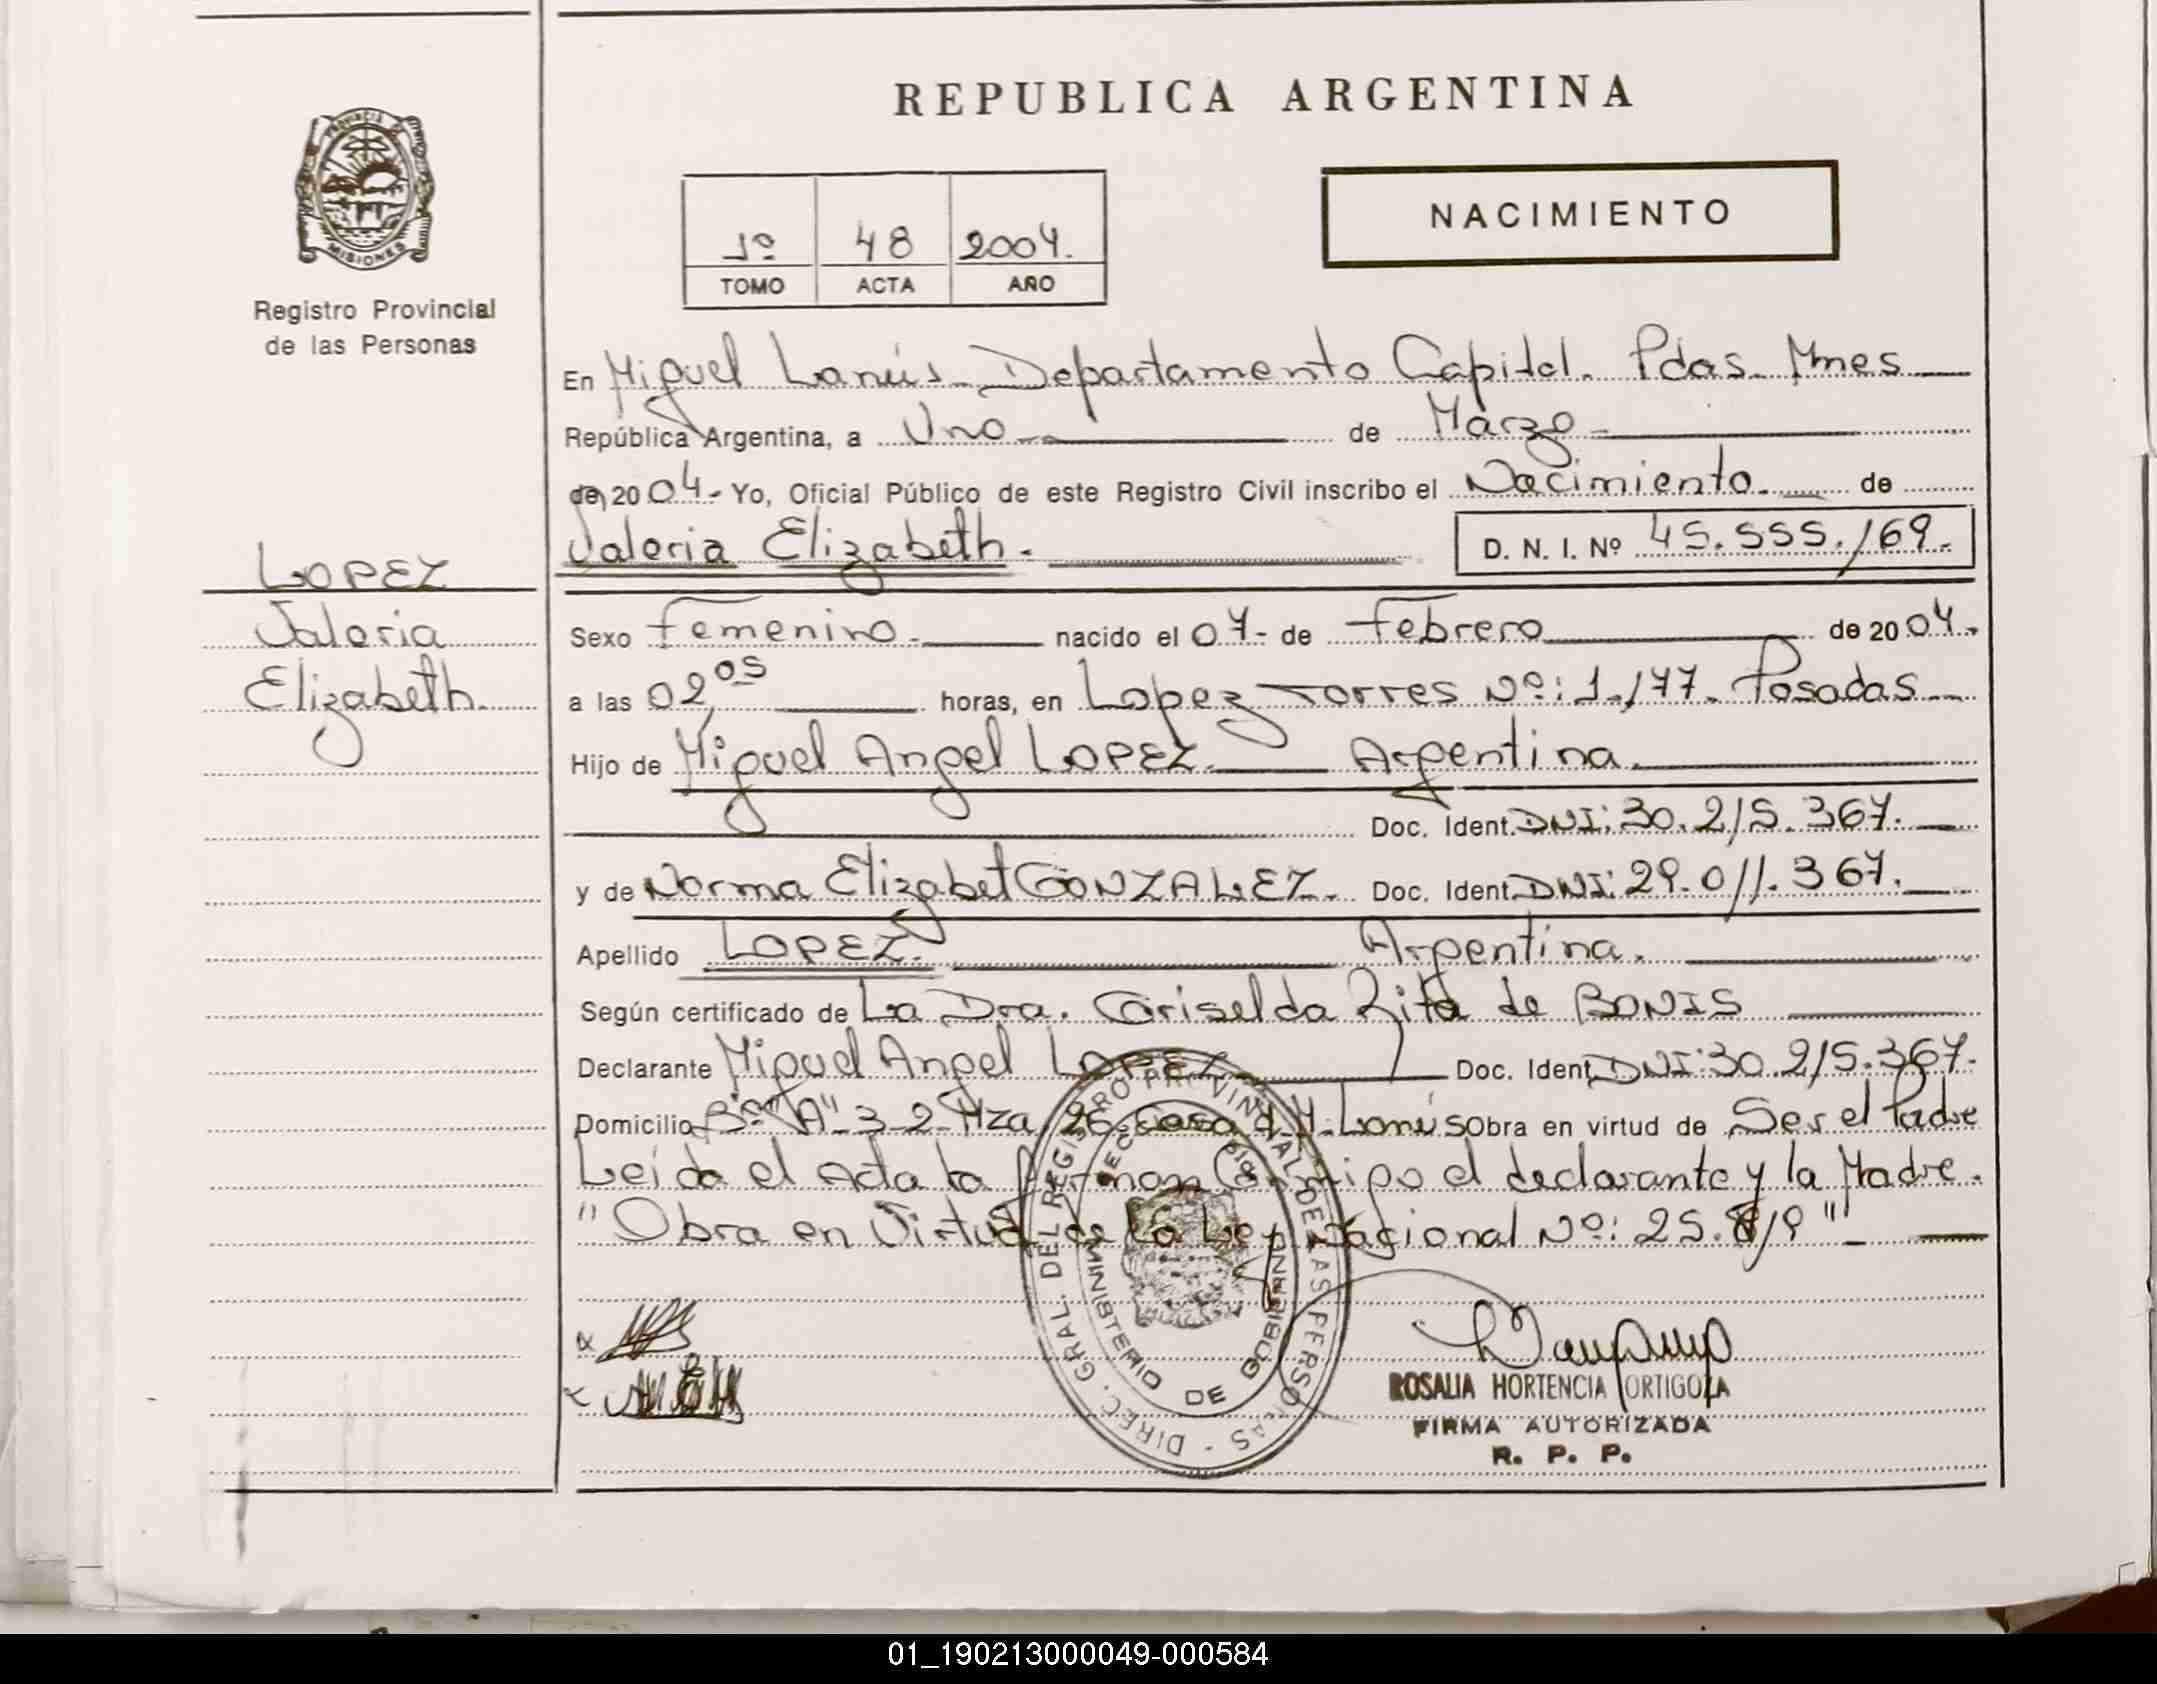 REPUBLICA ARGENTINA
PROVINCIA DE
MISIONES
Registro Provincial
de las Personas
1º 48 2004.
TOMO ACTA AÑO
NACIMIENTO
En Miguel Lanús. Departamento Capital. Pdas. Mnes
República Argentina, a Uno de Marzo
de, 2004.- Yo, Oficial Público de este Registro Civil inscribo el Nacimiento. de
Valeria Elizabeth.
D. N. I. Nº 45.555.169.
LOPEZ
Valeria
Elizabeth.
Sexo Femenino. nacido el 07- de Febrero de 2004.
a las 02,05 horas, en Lopez Torres Nº: 1.177. Posadas
Hijo de Miguel Angel LOPEZ. Argentina.
Doc. Ident. DNI: 30.215.367.
y de Norma Elizabet GONZALEZ. Doc. Ident. DNI: 29.011.367.
Apellido LOPEZ. Argentina.
Según certificado de La Dra. Griselda Rita de BONIS
Declarante Miguel Angel LOPEZ Doc. Ident. DNI: 30.215.367.
Domicilio Bº "A" 3-2 Mza 26 Casa 9 M. Lanús Obra en virtud de Ser el Padre
Leída el Acta la firman Conmigo el declarante y la Madre.
"Obra en Virtud de la Ley Nacional Nº: 25.819"
DIREC. GRAL. DEL REGISTRO PROVINCIAL DE LAS PERSONAS
MINISTERIO DE GOBIERNO
ROSALIA HORTENCIA ORTIGOZA
FIRMA AUTORIZADA
R. P. P.
01_190213000049-000584